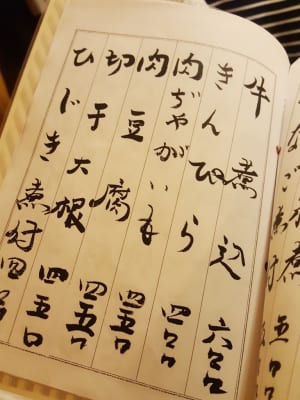 牛煮込 六〇〇
きんぴら 四〇〇
肉ぢゃがいも 四五〇
肉豆腐 四五〇
切干大根 四五〇
ひじき煮付 四